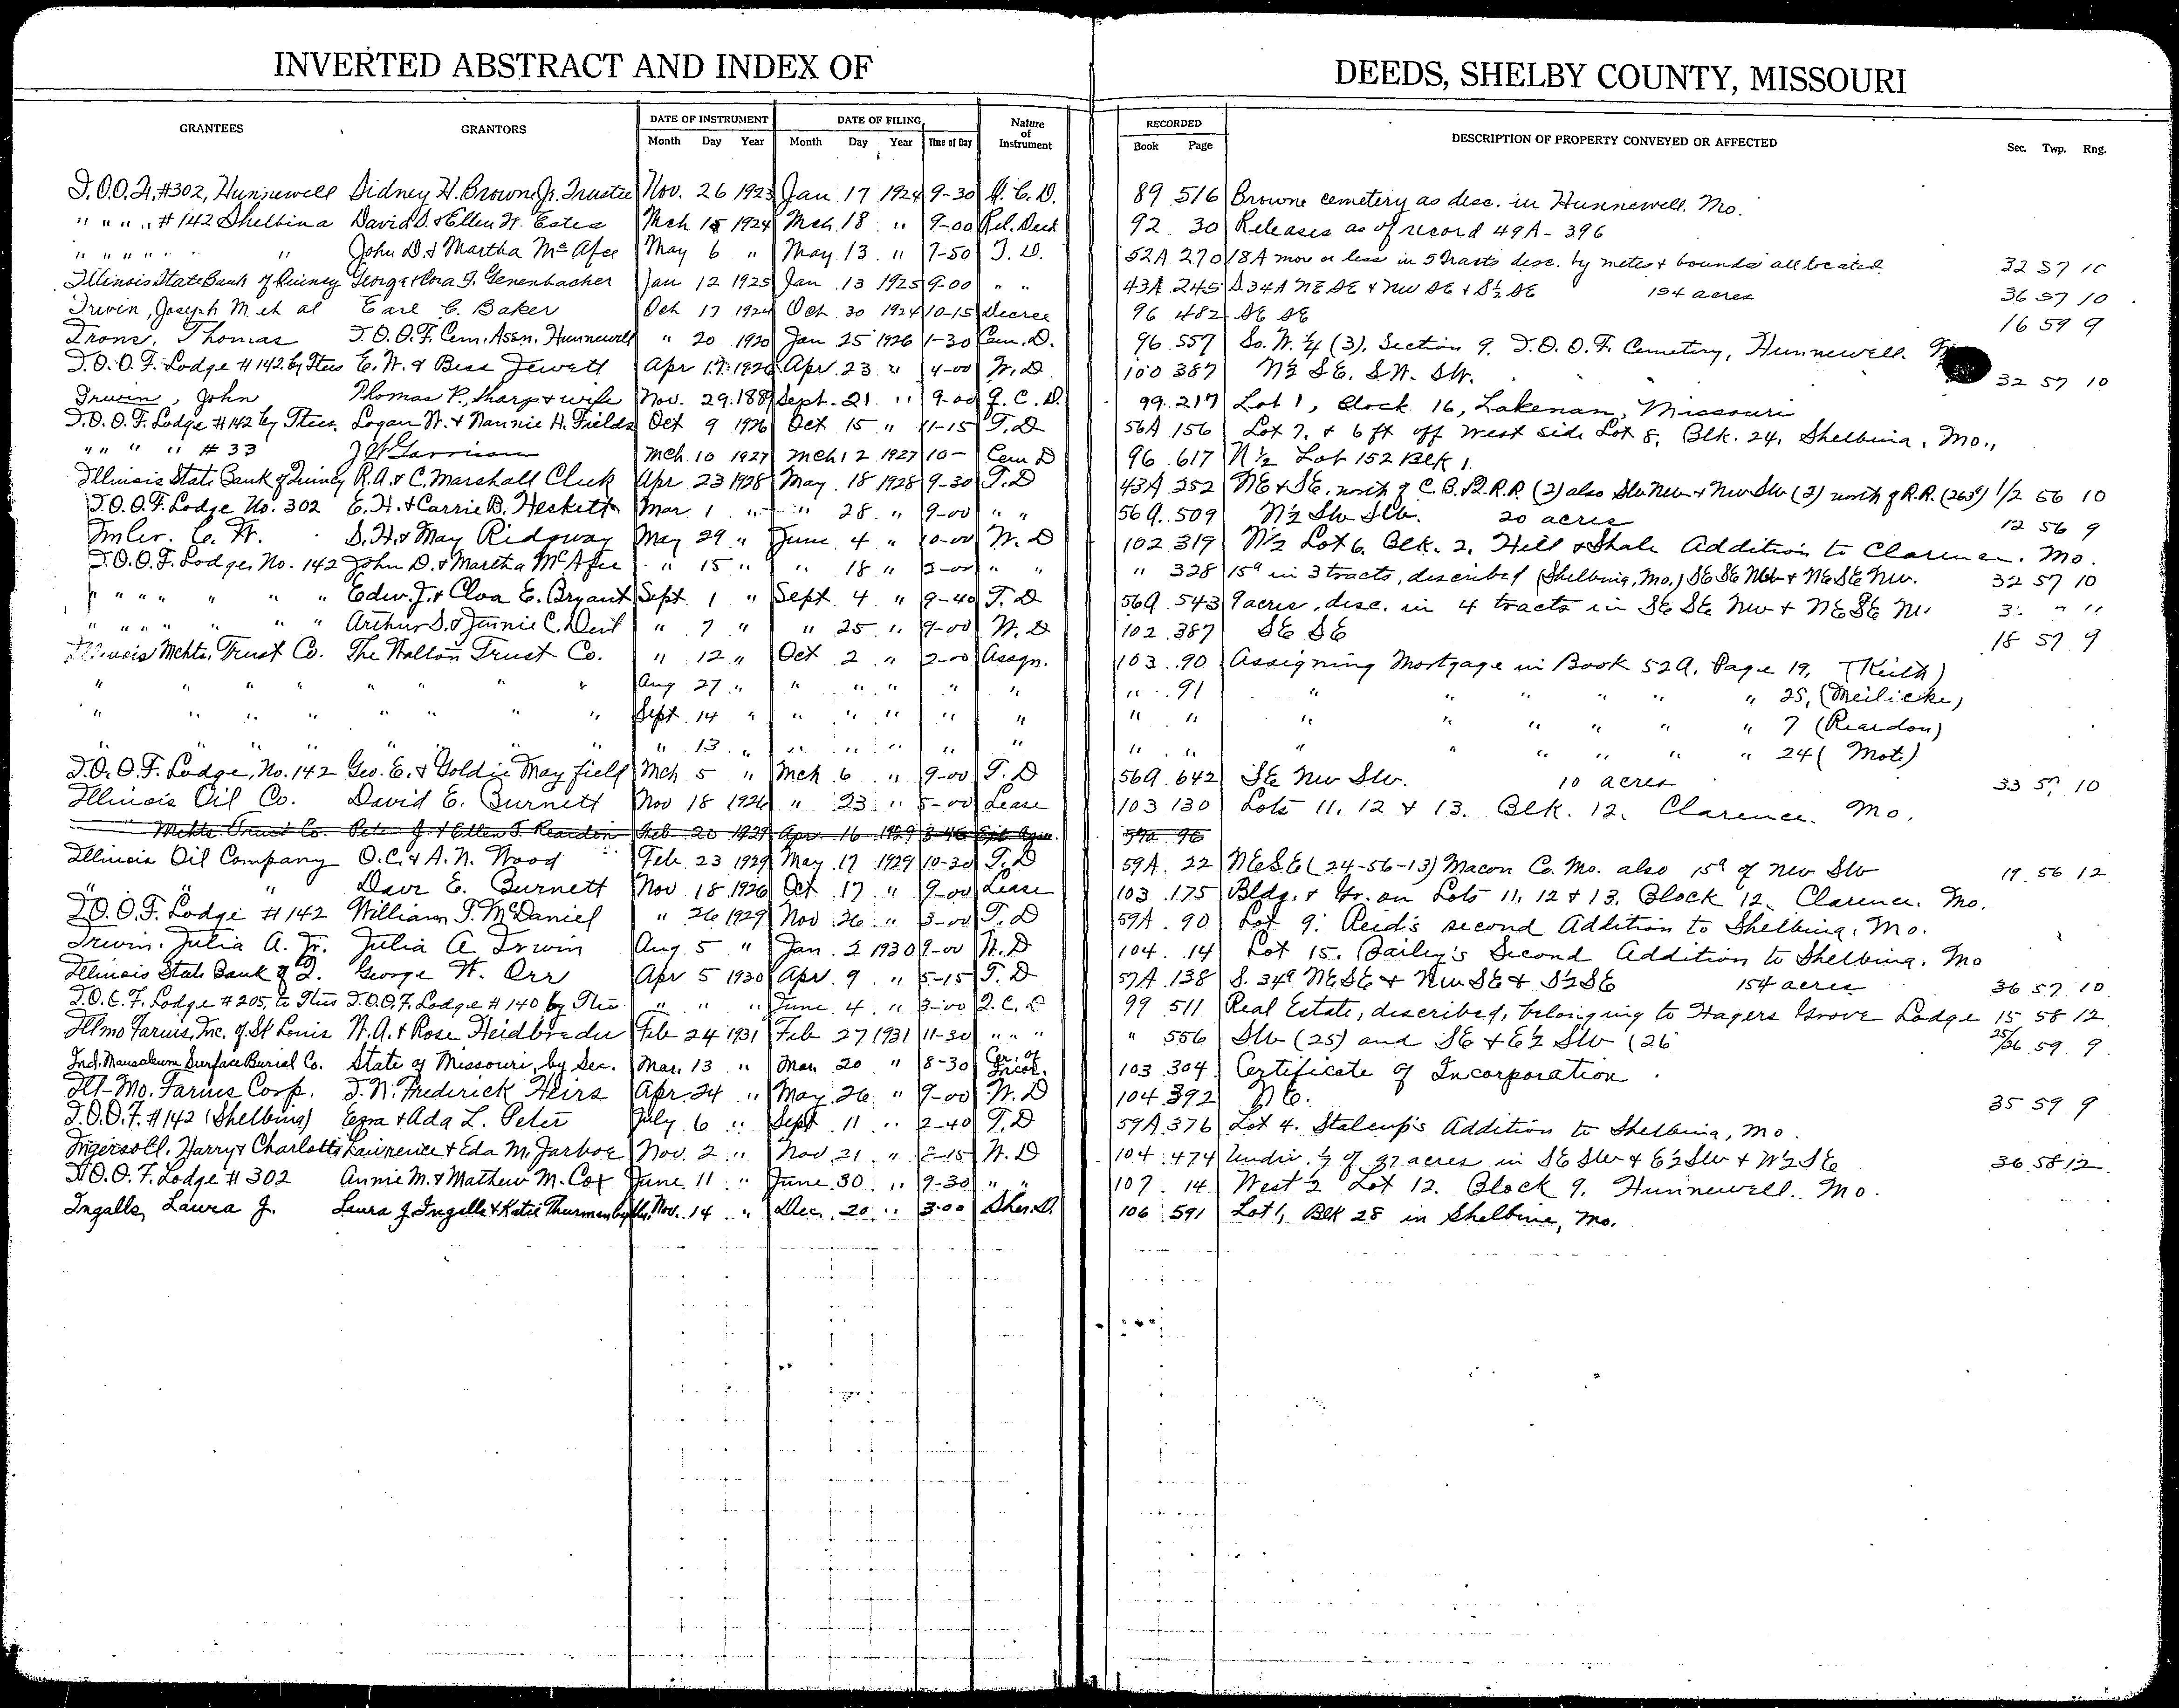 INVERTED ABSTRACT AND INDEX OF DEEDS, SHELBY COUNTY, MISSOURI
GRANTEES GRANTORS DATE OF INSTRUMENT DATE OF FILING Nature of Instrument RECORDED DESCRIPTION OF PROPERTY CONVEYED OR AFFECTED Sec. Twp. Rng.
Month Day Year Month Day Year Time of Day Book Page
I.O.O.F. #302, Hunnewell Sidney H. Browne Jr. Trustee Nov. 26 1923 Jan 17 1924 9-30 Q.C.D. 89 516 Browne cemetery as desc. in Hunnewell, Mo.
" " " " #142 Shelbina David S. & Ellen W. Estes Mch 15 1924 Mch. 18 " 9-00 Rel. Deed 92 30 Releases as of record 49A-396
" " " " " " John D. & Martha McAfee May 6 " May 13 " 7-50 T.D. 52A 270 18A more or less in 5 tracts desc. by metes & bounds all located 32 57 10
Illinois State Bank of Quincy George & Cora F. Genenbacher Jan 12 1925 Jan 13 1925 9-00 " " 43A 245 S 34A NE SE & NW SE & S½ SE 154 acres 36 57 10
Irwin, Joseph M et al Earl C. Baker Oct 17 1924 Oct. 30 1924 10-15 Decree 96 482 SE SE 16 59 9
Irons, Thomas I.O.O.F. Cem. Assn. Hunnewell " 20 1920 Jan 25 1926 1-30 Cem. D. 96 557 So. W. ¼ (3), Section 9, I.O.O.F. Cemetery, Hunnewell.
I.O.O.F. Lodge #142 by Ttees E. W. & Bess Jewett Apr 17 1926 Apr 23 " 4-00 W.D 100 387 N½ SE. SW. SW. 32 57 10
Irwin, John Thomas P. Sharp & wife Nov. 29 1889 Sept. 21 " 9-00 Q.C.D. 99 217 Lot 1, Block 16, Lakenan, Missouri
I.O.O.F. Lodge #142 by Ttees. Logan W. & Nannie H. Fields Oct 9 1926 Oct 15 " 11-15 T.D 56A 156 Lot 7, & 6 ft off West side Lot 8, Blk. 24, Shelbina, Mo.,
" " " " #33 J W Garrison Mch 10 1927 Mch 12 1927 10- Cem D 96 617 N½ Lot 152 Blk 1.
Illinois State Bank of Quincy R.A. & C. Marshall Cluck Apr 23 1928 May 18 1928 9-30 T.D 43A 252 NE & SE, north of C.B.&Q.R.R. (2) also SW NW & NW SW (2) north of R.R. (263ª) 1/2 56 10
I.O.O.F. Lodge No. 302 E. H. & Carrie B. Heskett Mar 1 " " 28 " 9-00 " " 56A 509 N½ SW SW. 20 acres 12 56 9
Imler, C. W. S. H. & May Ridgway May 29 " June 4 " 10-00 W.D 102 319 N½ Lot 6, Blk. 2, Hill & Shale Addition to Clarence, Mo.
I.O.O.F. Lodge, No. 142 John D. & Martha McAfee " 15 " " 18 " 2-00 " " " 328 15ª in 3 tracts, described (Shelbina, Mo.) SE SE NW & NE SE NW. 32 57 10
" " " " " " Edw. J. & Cloa E. Bryant Sept 1 " Sept 4 " 9-40 T.D 56A 543 9 acres, desc. in 4 tracts in SE SE NW & NE SE NW
" " " " " " Arthur S. & Jennie C. Dent " 7 " " 25 " 9-00 W.D 102 387 SE SE 18 57 9
Illinois Mchts. Trust Co. The Walton Trust Co. " 12 " Oct 2 " 2-00 Assgn. 103 90 Assigning Mortgage in Book 52A, Page 19, (Keith)
" " " " " " " " Aug 27 " " " " " " " 91 " " " " " 25, (Meilicke)
" " " " " " " " Sept 14 " " " " " " " " " " " " " 7 (Reardon)
" " " " " " " " " 13 " " " " " " " " " " " " " 24 (Mote)
I.O.O.F. Lodge, No. 142 Geo. E. & Goldie Mayfield Mch 5 " Mch 6 " 9-00 T.D 56A 642 SE NW SW. 10 acres 33 57 10
Illinois Oil Co. David E. Burnett Nov 18 1926 " 23 " 5-00 Lease 103 130 Lots 11, 12 & 13, Blk. 12, Clarence, Mo.
" Mchts. Trust Co. Peter J. & Ellen T. Reardon Feb 20 1929 Apr 16 1929 8-45 Ext. Agree. 59A 96
Illinois Oil Company O.C. & A.N. Wood Feb 23 1929 May 17 1929 10-30 T.D 59A 22 NE SE (24-56-13) Macon Co. Mo. also 15ª of NW SW 19 56 12
" " " Dave E. Burnett Nov 18 1926 Oct 17 " 9-00 Lease 103 175 Bldg. & Gr. on Lots 11, 12 & 13, Block 12, Clarence, Mo.
I.O.O.F. Lodge #142 William T. McDaniel " 26 1929 Nov 26 " 3-00 T.D 59A 90 Lot 9, Reid's second Addition to Shelbina, Mo.
Irwin, Julia A. Jr. Julia A. Irwin Aug 5 " Jan 2 1930 9-00 W.D 104 14 Lot 15, Bailey's Second Addition to Shelbina, Mo
Illinois State Bank of Q. George W. Orr Apr 5 1930 Apr. 9 " 5-15 T.D 57A 138 S. 34ª NE SE & NW SE & S½ SE 154 acres 36 57 10
I.O.O.F. Lodge #205 to Ttees I.O.O.F. Lodge #140 by Ttee " " " June 4 " 3-00 Q.C.D 99 511 Real Estate, described, belonging to Hagers Grove Lodge 15 58 12
Illmo Farms, Inc. of St Louis W.A. & Rose Heidbreder Feb 24 1931 Feb 27 1931 11-30 " " " " 556 SW (25) and SE & E½ SW (26 25/26 59 9
Ind. Mausoleum Surface Burial Co. State of Missouri, by Sec. Mar. 13 " Mar. 20 " 8-30 Cer. of Incor. 103 304 Certificate of Incorporation
Ill-Mo. Farms Corp. J. N. Frederick Heirs Apr 24 " May 26 " 9-00 W.D 104 392 NE. 35 59 9
I.O.O.F. #142 (Shelbina) Ezra & Ada L. Peter July 6 " Sept 11 " 2-40 T.D 59A 376 Lot 4, Stalcup's Addition to Shelbina, Mo.
Ingersoll, Harry & Charlotte Lawrence & Eda M. Jarboe Nov. 2 " Nov 21 " W.D 104 474 Undiv. of 97 acres in SE SW & E½ SW & W½ SE 36 58 12
I.O.O.F. Lodge #302 Annie M. & Mathew M. Cox June 11 " June 30 " 9-30 " " 107 14 West ½ Lot 12, Block 9, Hunnewell, Mo.
Ingalls, Laura J. Laura J. Ingalls & Katie Thurman by Nov. 14 " Dec. 20 " 3-00 Sher. D. 106 591 Lot 1, Blk 28 in Shelbina, Mo.